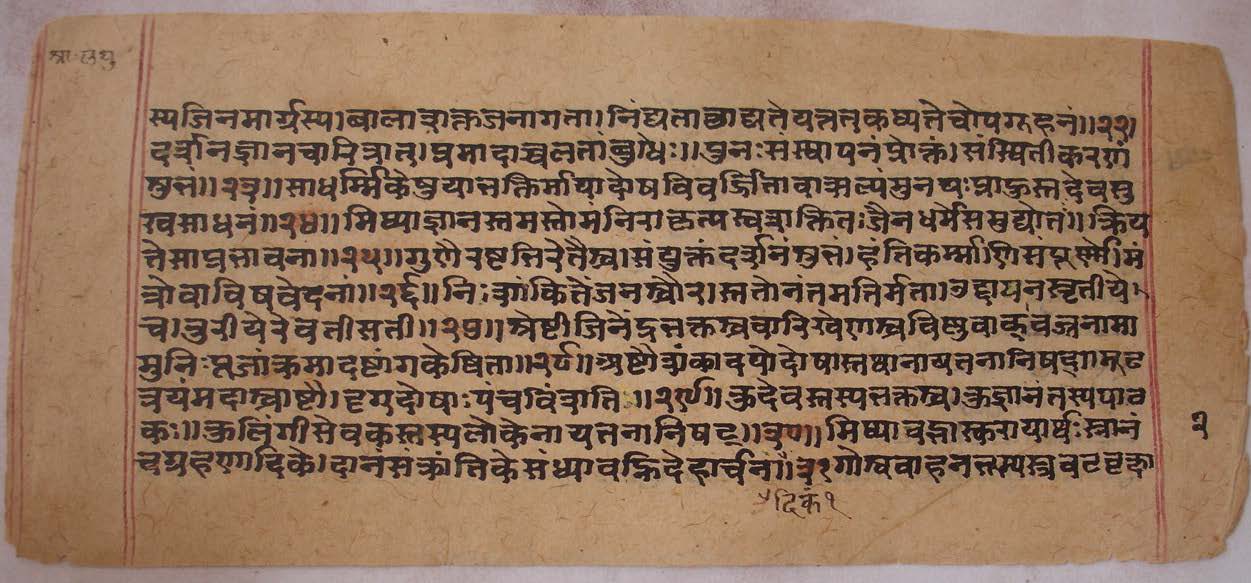 श्रा॰ लघु
स्य जिनमार्गस्य। बालाशक्तजनागता। निंद्यताछाद्यते यत्र तत्कथ्यते चोपगूहनं॥२२।
दर्शनज्ञानचारित्रात्। प्रमादाच्चलतां बुधैः॥ पुनः संस्थापनं प्रोक्तं। संस्थितीकरणं
शुभं॥२३॥ साधर्म्मिकेषु या भक्तिर्मायादोषविवर्जिता वात्सल्यं मुनयः प्राहुस्तदेव सु
खसाधनं॥२४॥ मिथ्याज्ञानतमस्तोमनिराकृत्य स्वशक्तितः जैनधर्मसमुद्योतं॥ क्रिय
ते सा प्रभावना॥२५॥ गुणैरष्टभिरेतैश्च। संयुक्तं दर्शनं शुभं। हंति कर्म्माणि संपूर्णं। मं
त्रो वा विषवेदनां॥२६॥ निःशंकितेंजनश्चौर। स्ततोनंतमतिर्मता। उद्दायनस्तृतीये
च। तुरीये रेवती सती॥२७॥ श्रेष्टी जिनेंद्रभक्तश्च वारिषेणश्च विष्णुवाक् वज्रनामा
मुनिः पूजां क्रमादष्टांगकेषिता॥२८॥ अष्टौ शंकादयो दोषास्तथानायतनानि षट्। मूढ
त्रयं मदाश्चाष्टौ। दृग्दोषाः पंचविंशति॥२९॥ कुदेवस्तस्य भक्तश्च। कुज्ञानं तस्य पाठ
कः॥ कुलिंगी सेवकस्तस्य लोकेनायतनानि षट्॥३०॥ मिथ्यावद्भास्करायार्घः स्नानं
च ग्रहणादिके। दानं संक्रांतिके संध्या वह्निदेहार्चनं॥३१ गोश्ववाहन
दिकं१
२